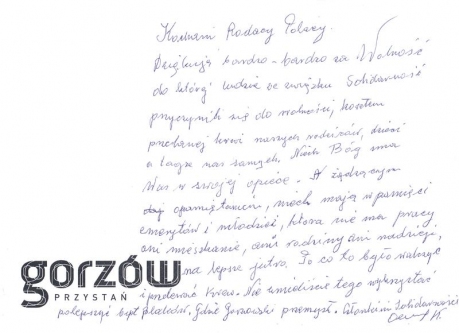 Kochani Rodacy Polacy.
Dziękuję bardzo - bardzo za Wolność
do której ludzie ze związku Solidarność
przyczynili się do wolności, kosztem
przelanej krwi naszych rodziców, dzieci
a także nas samych. Niech Bóg ma
Was w swojej opiece. A rządzącym
daj opamiętanie, niech mają w pamięci
emerytów i młodzież, która nie ma pracy
ani mieszkanie, ani rodziny ani nadziei,
na lepsze jutro. To co to było walczyć
i przelewać Krew. Nie umieliście tego wykorzystać
polepszyć byt Gdzie Gorzowski przemysł. Solidarności
gorzów
PRZYSTAŃ